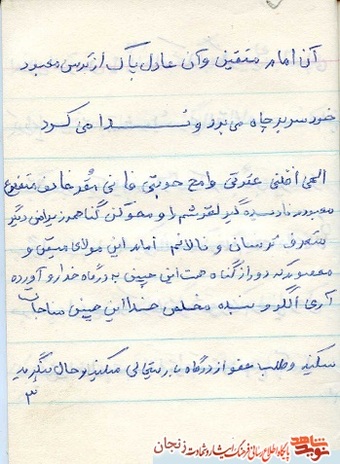 آن امام متقین و آن عادل پاک از ترس معبود
خود سر بر چاه می برد و نــدا می کرد
الهی اقلنی عثرتی وامح حوبتی فانی مقر خائف متضرع
معبودم نادیده گیر لغزشم را و محو کن گناهم زیرا من دیگر
معترف ترسان و نالانم اما این مولای متقین و
معصوم که دور از گناه است این چنین به درگاه خدا رو آورده
آری الگو و بنده مخلص خدا این چنین مناجات
میکند و طلب عفو از درگاه باریتعالی میکند و حال بنگرید
۳
شاهد
نوید
پایگاه اطلاع رسانی فرهنگ ایثار و شهادت زنجان